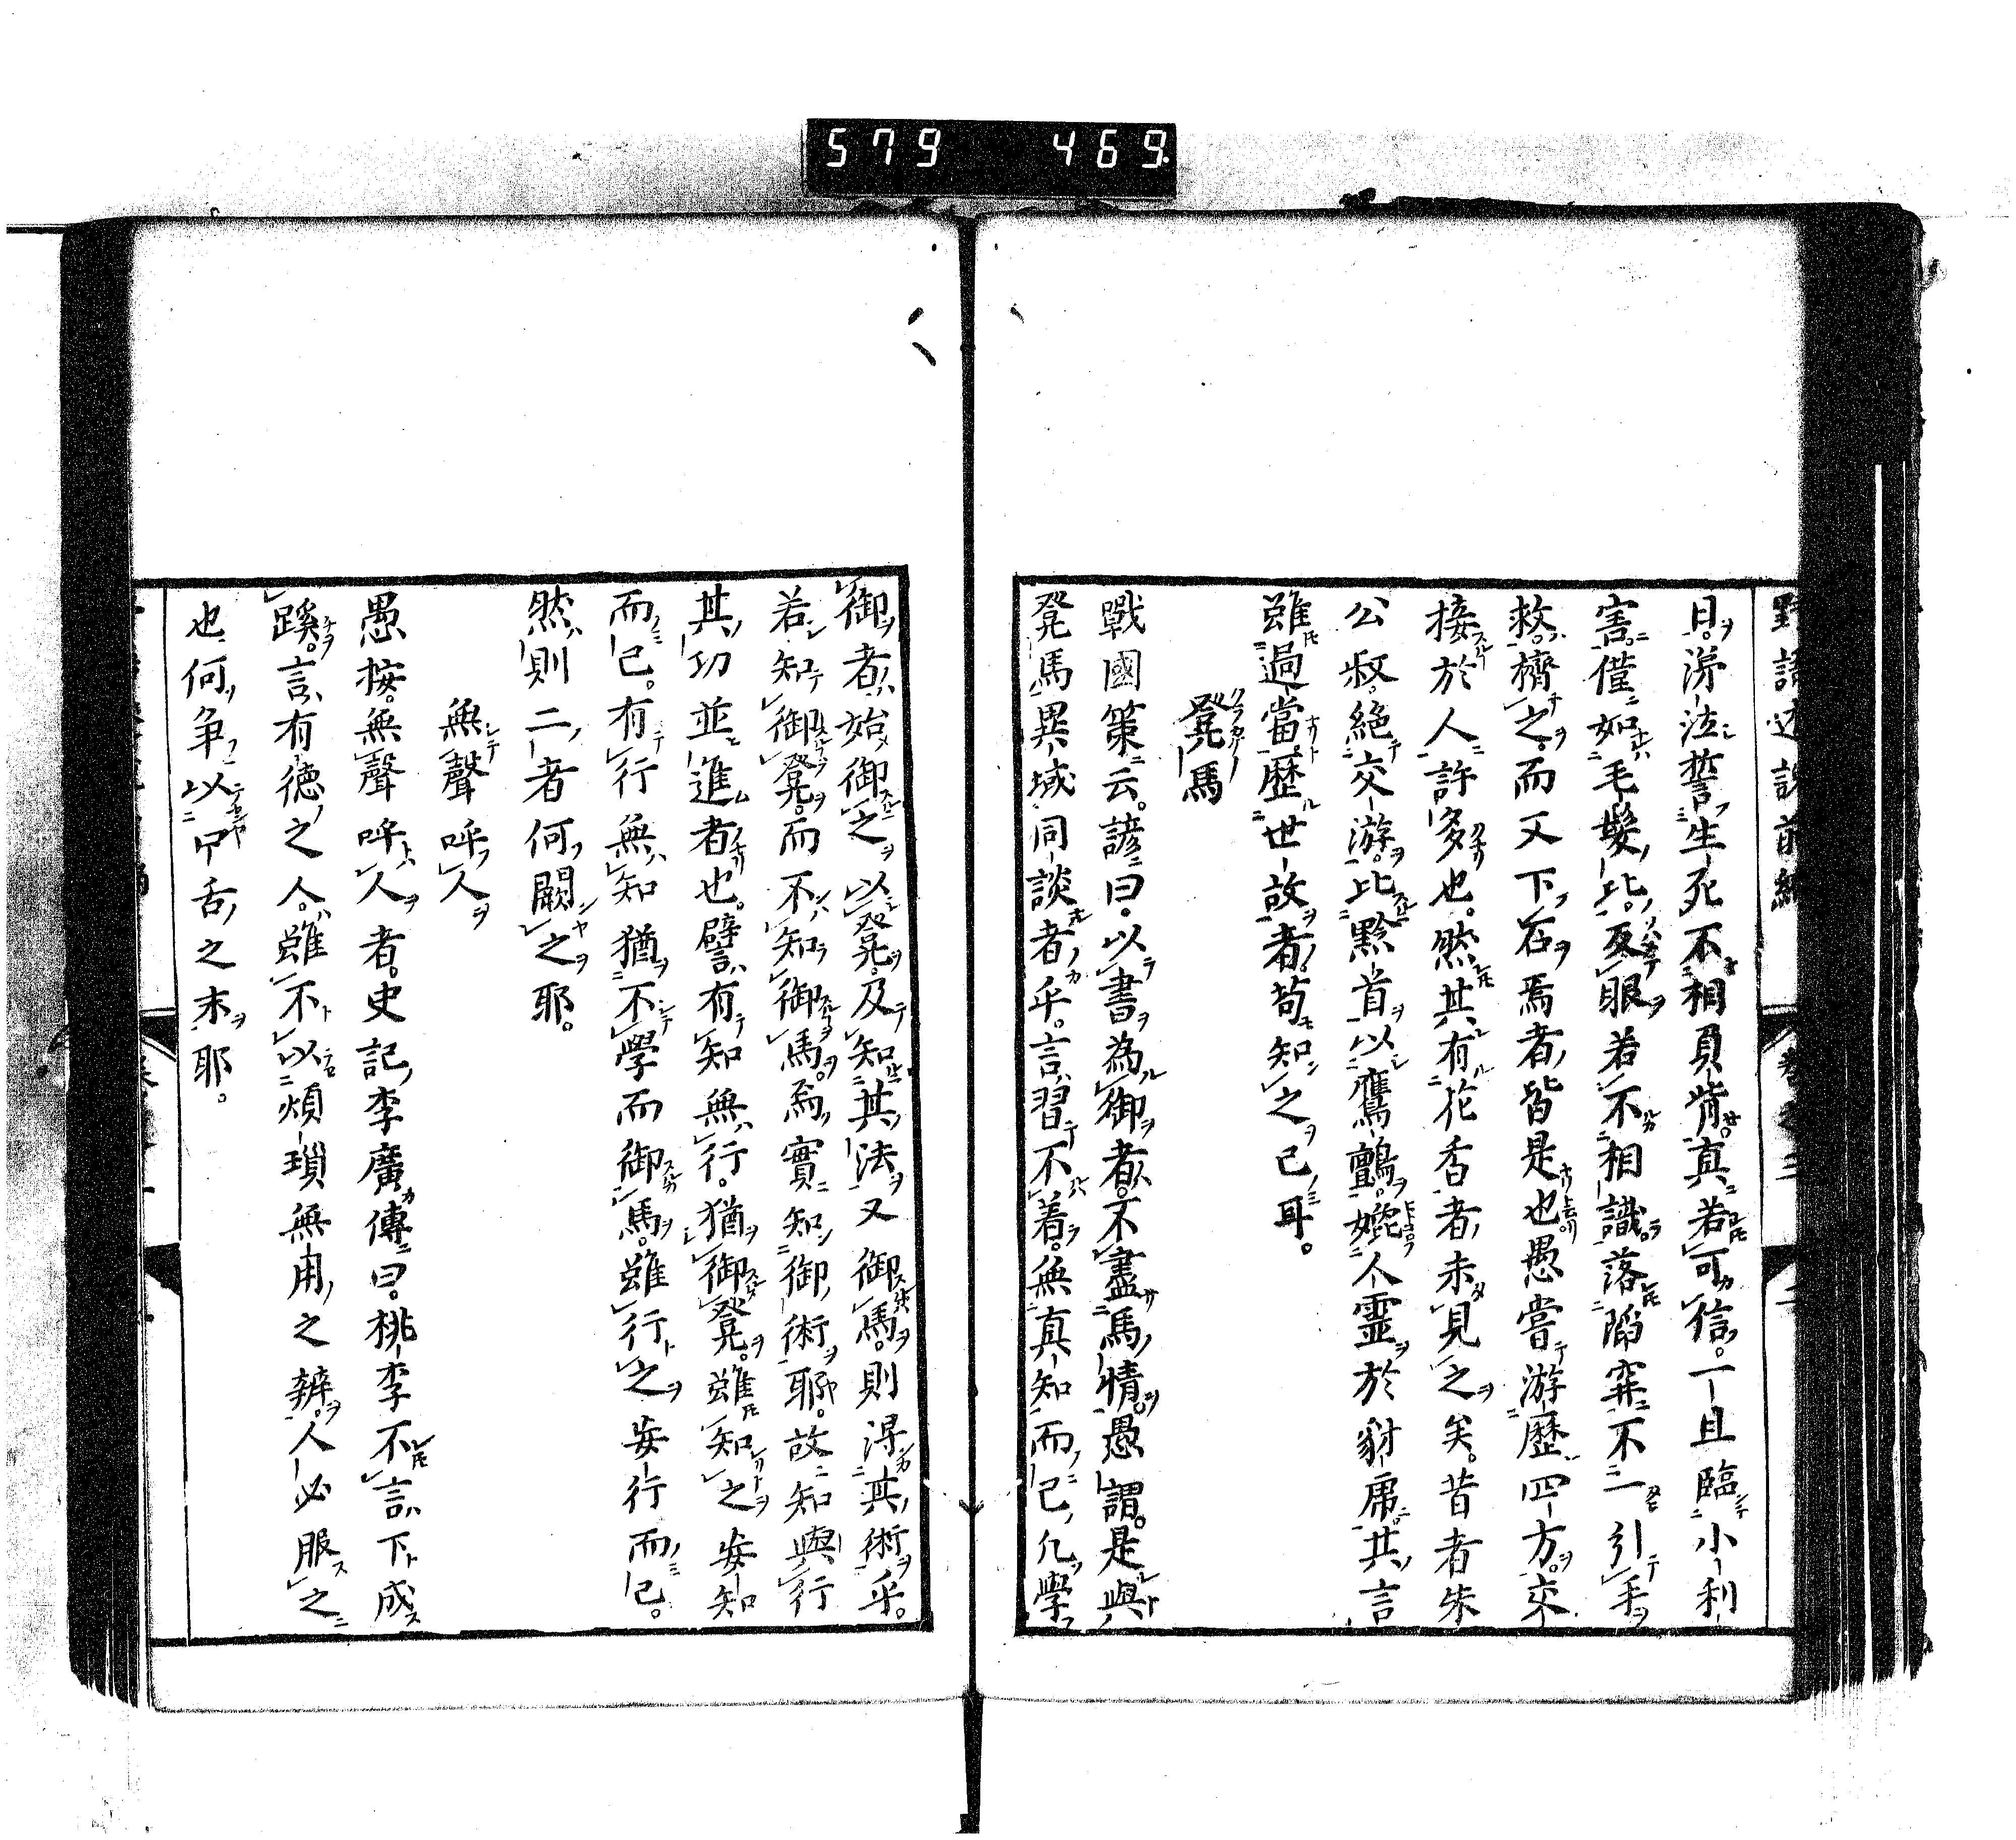 579 469
野語述説前編 卷之三 二
日。涕泣誓生死不相負背。真若可信。一旦臨小利
害。僅如毛髮比。反眼若不相識。落陥穽不一引手
救。擠之。而又下石焉者皆是也。愚嘗游歷四方。交
接於人許多也。然其有花香者未見之矣。昔者朱
公叔。絶交游。比黔首以鷹鸇。媲人靈於豺虎。其言
雖過當。歷世故者。苟知之已耳。
凳馬
戰國策云。諺曰。以書為御者。不盡馬情。愚謂。是與
凳馬異域同談者乎。言習不着。無真知而已。凡學
御者。始御之以凳。及知其法又御馬。則得其術乎。
若知御凳。而不知御馬。焉實知御術耶。故知與行
其功並進者也。譬言有知無行。猶御凳。雖知之安知
而已。有行無知猶不學而御馬。雖行之安行而已。
然則二者何闕之耶。
無聲呼人
愚按。無聲呼人者。史記李廣傳曰。桃李不言下成
蹊。言有徳之人。雖不以煩瑣無用之辨。人必服之
也何争以口舌之末耶。